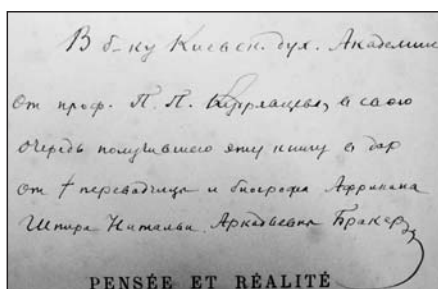 В б-ку Киевск. дух. Академии
от проф. П. П. Кудрявцева, в свою
очередь получившего эту книгу в дар
от † переводчицы и биографа Африкана
Шпира Натальи Аркадьевны Бракер
PENSÉE ET RÉALITÉ